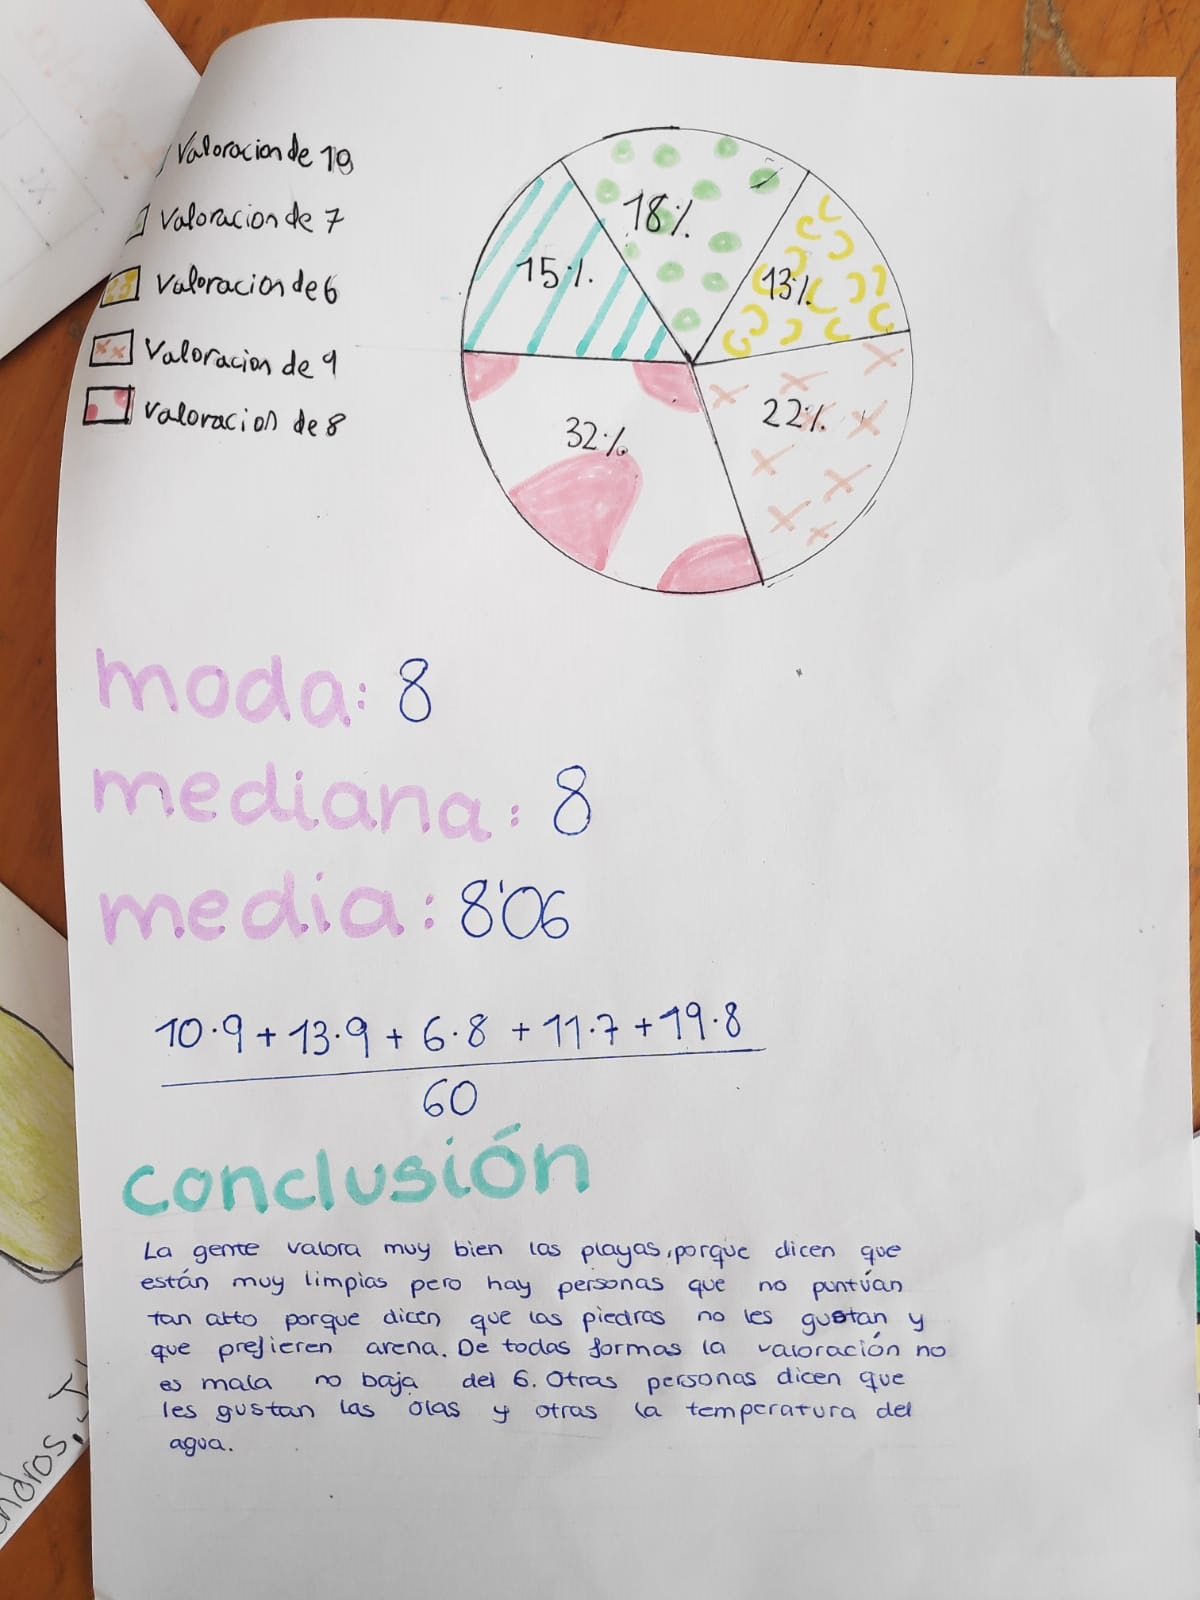 Valoracion de 10
Valoracion de 7
Valoracion de 6
Valoracion de 9
Valoracion de 8
18%
15%
13%
22%
32%
moda: 8
mediana: 8
media: 8'06
10·9 + 13·9 + 6·8 + 11·7 + 19·8
60
conclusión
La gente valora muy bien las playas, porque dicen que
están muy limpias pero hay personas que no puntúan
tan alto porque dicen que las piedras no les gustan y
que prefieren arena. De todas formas la valoración no
es mala no baja del 6. Otras personas dicen que
les gustan las olas y otras la temperatura del
agua.